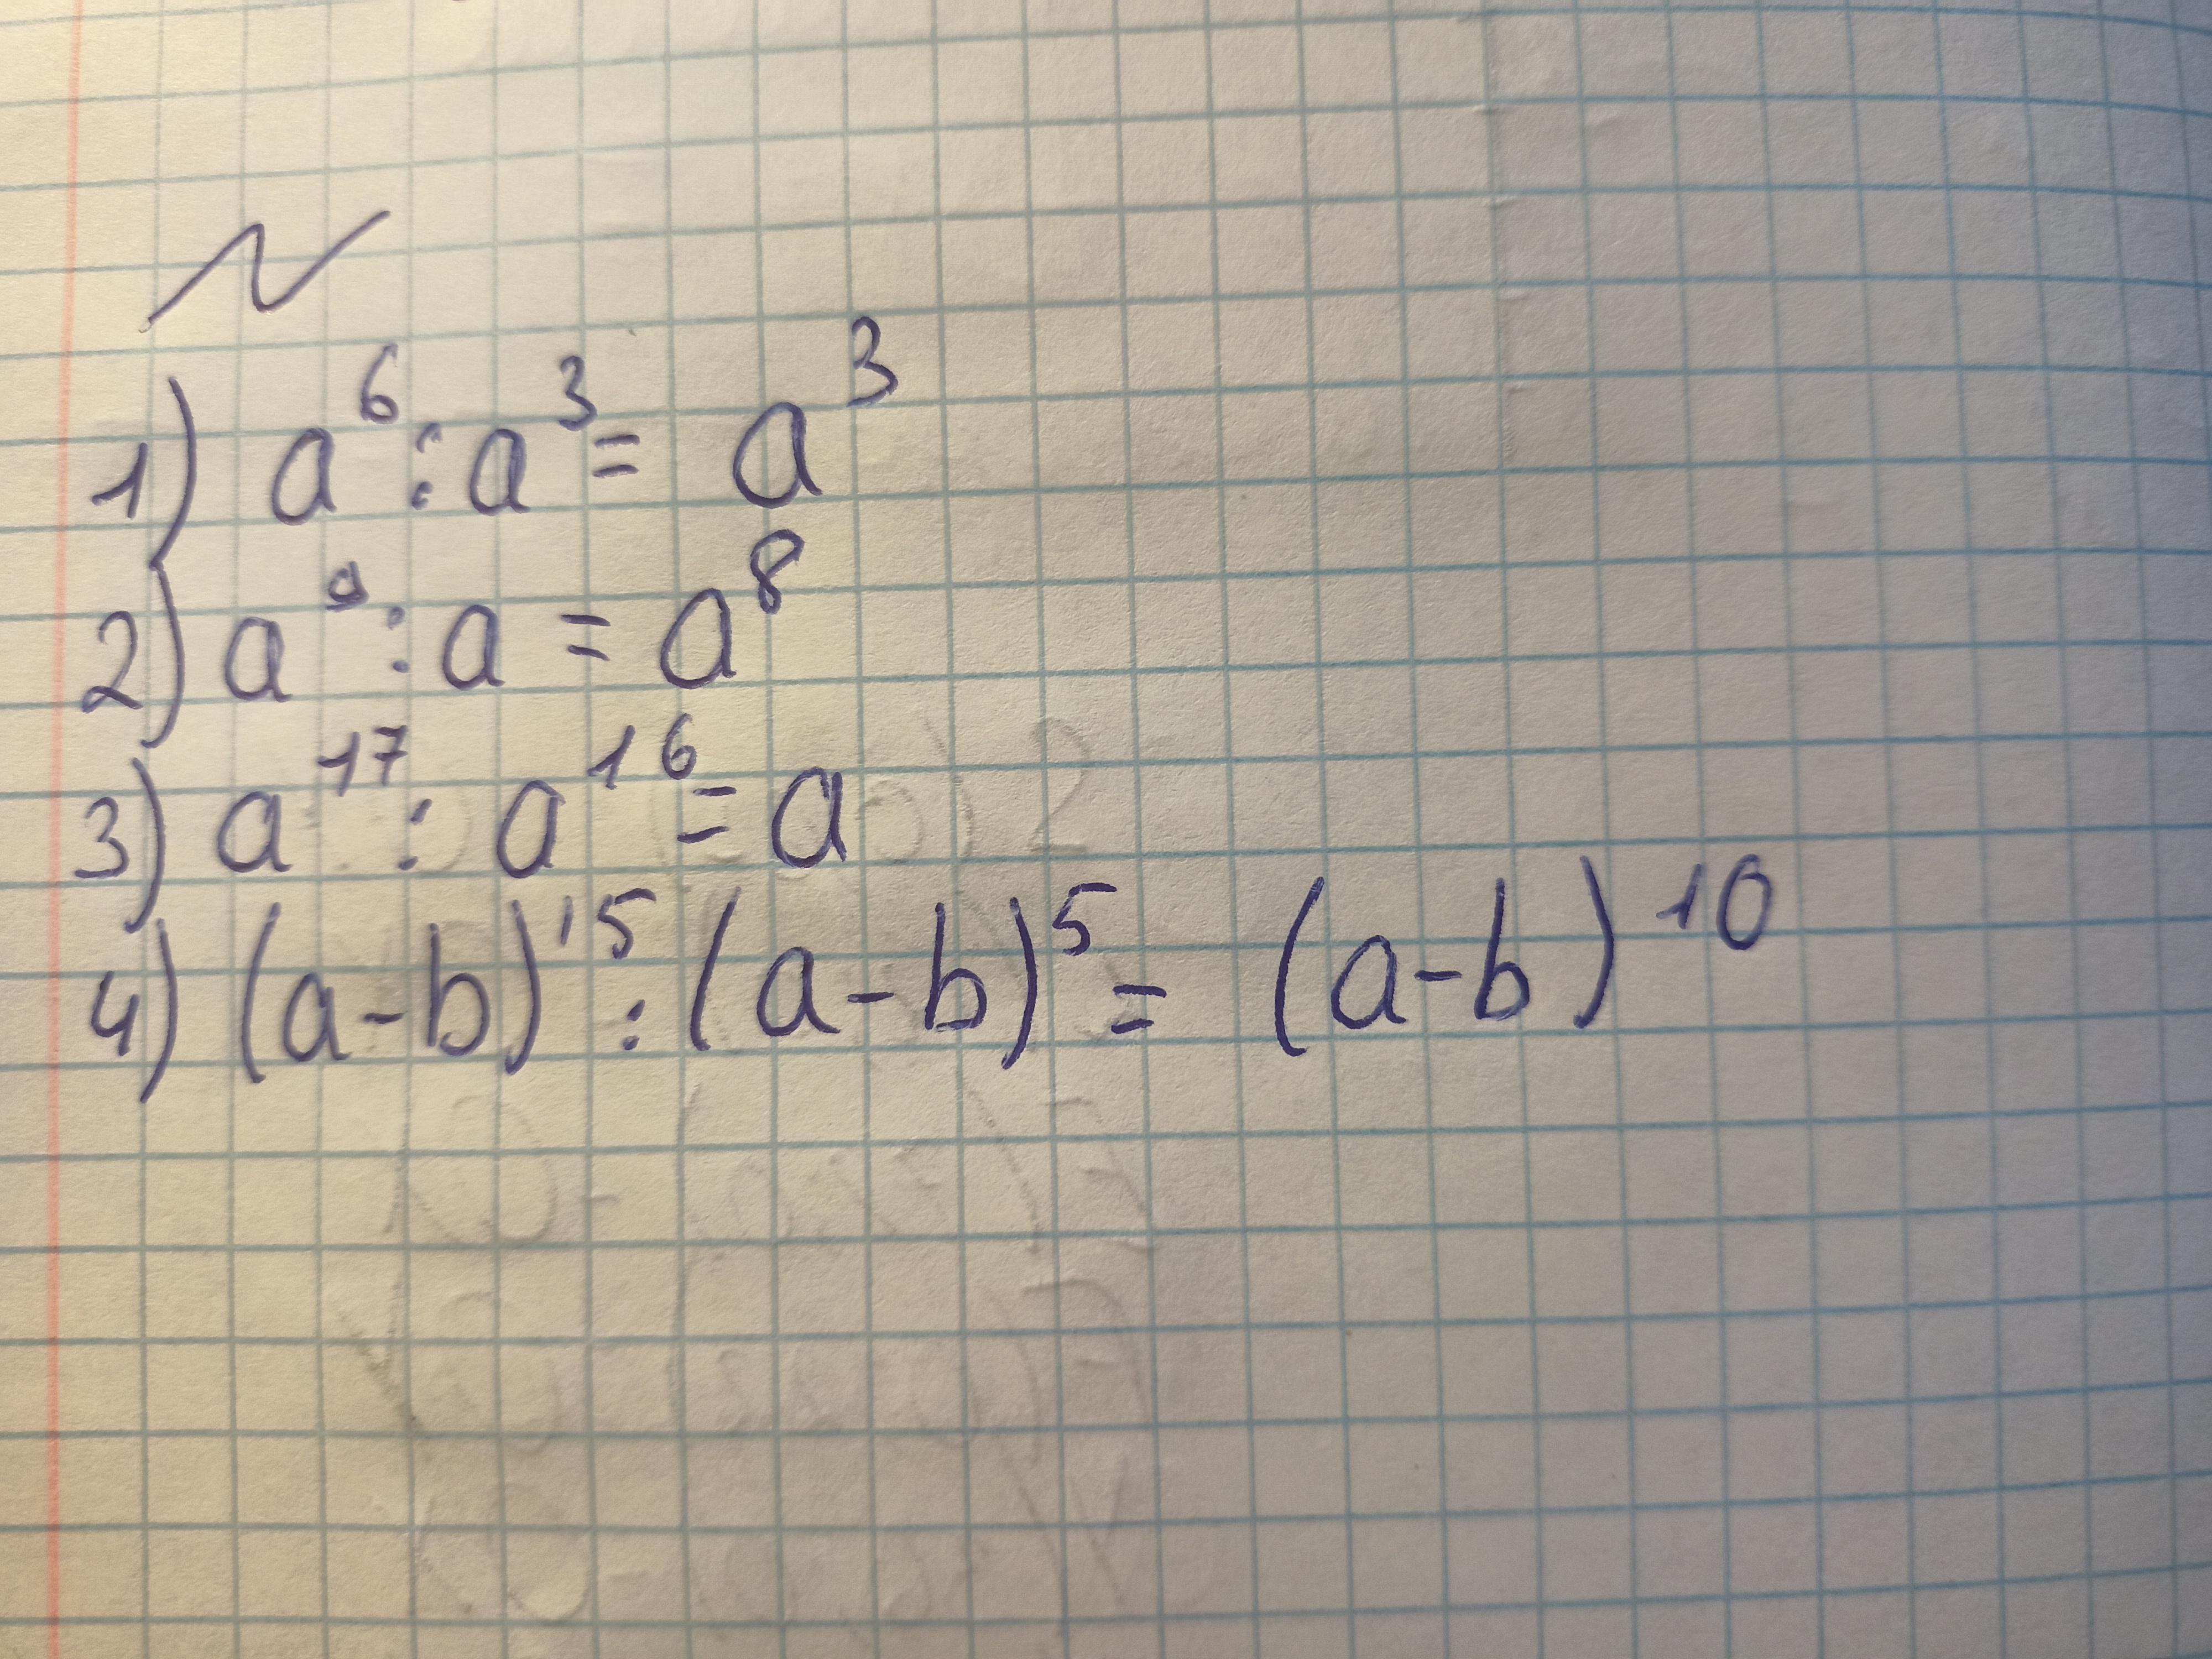 N
1) a⁶ : a³ = a³
2) a⁹ : a = a⁸
3) a¹⁷ : a¹⁶ = a
4) (a-b)¹⁵ : (a-b)⁵ = (a-b)¹⁰